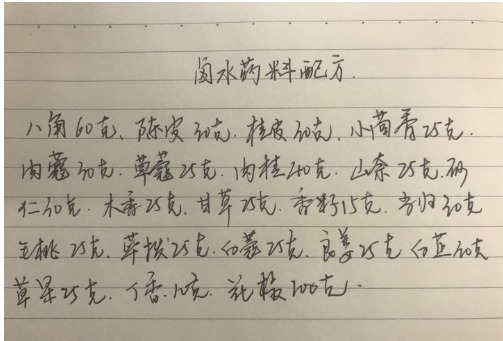 卤水药料配方.
八角60克、陈皮30克.桂皮30克.小茴香25克.
肉蔻30克.草蔻25克.肉桂40克.山奈25克.砂
仁30克.木香25克.甘草25克.香籽15克.当归30克
毛桃25克.荜拨25克.白蔻25克.良姜25克 白芷30克
草果25克.丁香.10克.花椒100克.